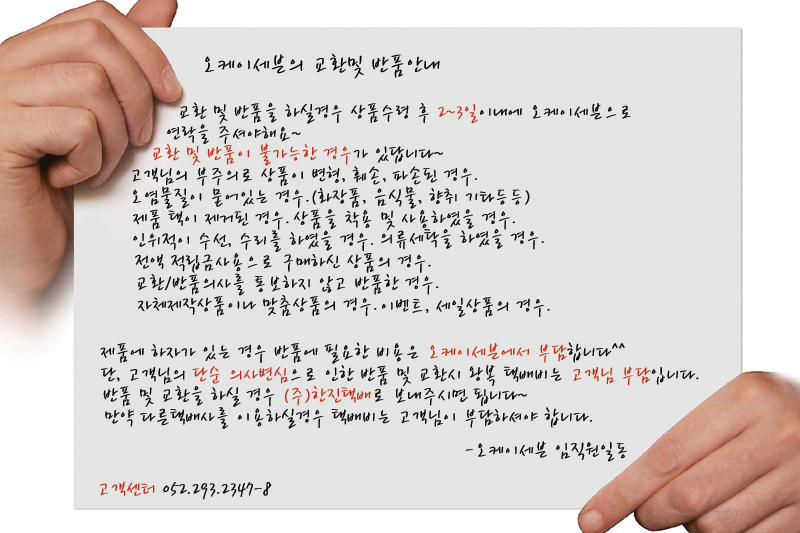 오케이세븐의 교환및 반품안내
교환 및 반품을 하실경우 상품수령 후 2~3일이내에 오케이세븐으로
연락을 주셔야해요~
교환 및 반품이 불가능한 경우가 있답니다~
고객님의 부주의로 상품이 변형, 훼손, 파손된 경우.
오염물질이 묻어있는 경우.(화장품, 음식물, 향취 기타등등)
제품 택이 제거된 경우. 상품을 착용 및 사용하였을 경우.
인위적이 수선, 수리를 하였을 경우. 의류세탁을 하였을 경우.
전액 적립금사용으로 구매하신 상품의 경우.
교환/반품의사를 통보하지 않고 반품한 경우.
자체제작상품이나 맞춤상품의 경우. 이벤트, 세일상품의 경우.
제품에 하자가 있는 경우 반품에 필요한 비용은 오케이세븐에서 부담합니다^^
단, 고객님의 단순 의사변심으로 인한 반품 및 교환시 왕복 택배비는 고객님 부담입니다.
반품 및 교환을 하실 경우 (주)한진택배로 보내주시면 됩니다~
만약 다른택배사를 이용하실경우 택배비는 고객님이 부담하셔야 합니다.
-오케이세븐 임직원일동
고객센터 052.293.2347-8